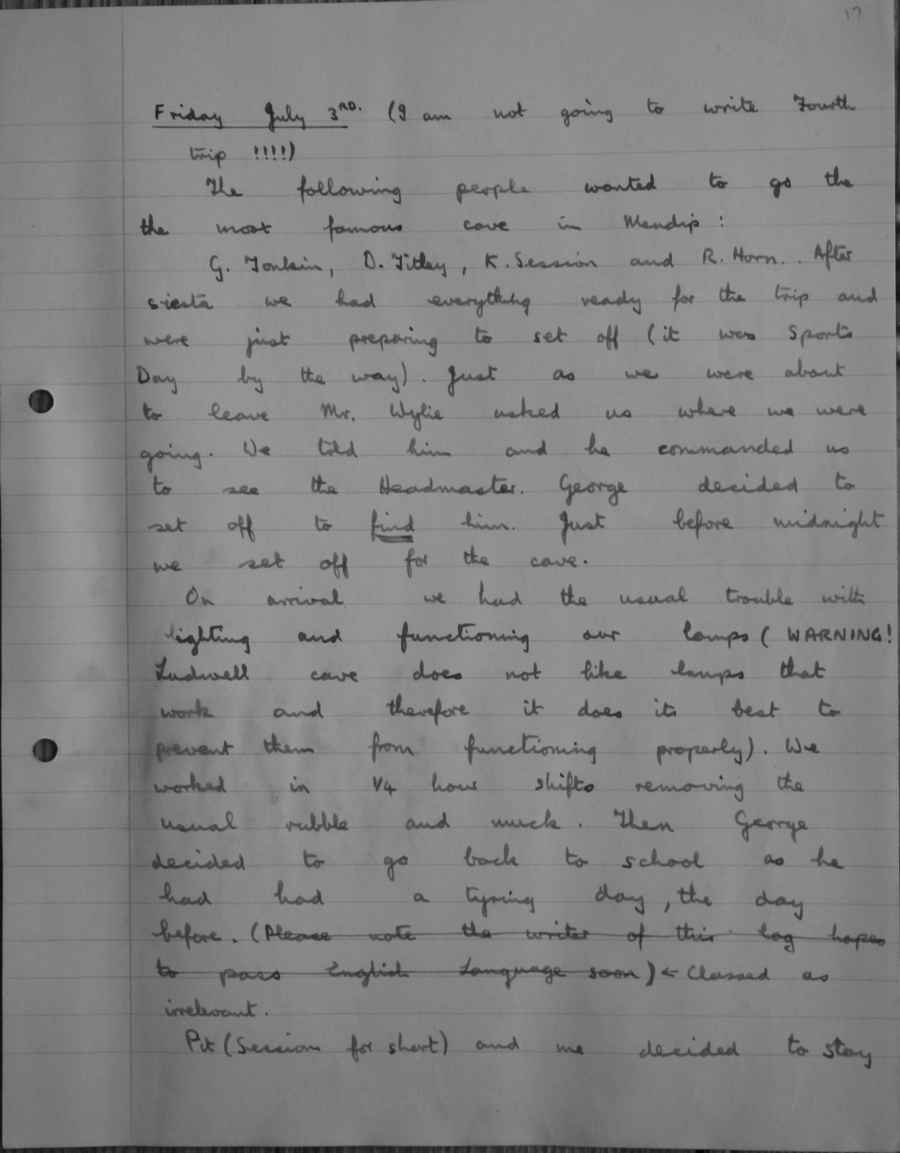 17
Friday July 3RD. (I am not going to write Fourth
trip !!!!)
The following people wanted to go the
the most famous cave in Mendip :
G. Tonkin, D. Titley, K. Session and R. Horn. After
siesta we had everything ready for the trip and
were just preparing to set off (it was Sports
Day by the way). Just as we were about
to leave Mr. Wylie asked us where we were
going. We told him and he commanded us
to see the Headmaster. George decided to
set off to find him. Just before midnight
we set off for the cave.
On arrival we had the usual trouble with
lighting and functioning our lamps ( WARNING!
Ludwell cave does not like lamps that
work and therefore it does its best to
prevent them from functioning properly). We
worked in 1/4 hour shifts removing the
usual rubble and muck. Then George
decided to go back to school as he
had had a tyring day, the day
before. (Please note the writer of this log hopes
to pass English Language soon) ← Classed as
irrelevant.
Pit (Session for short) and me decided to stay